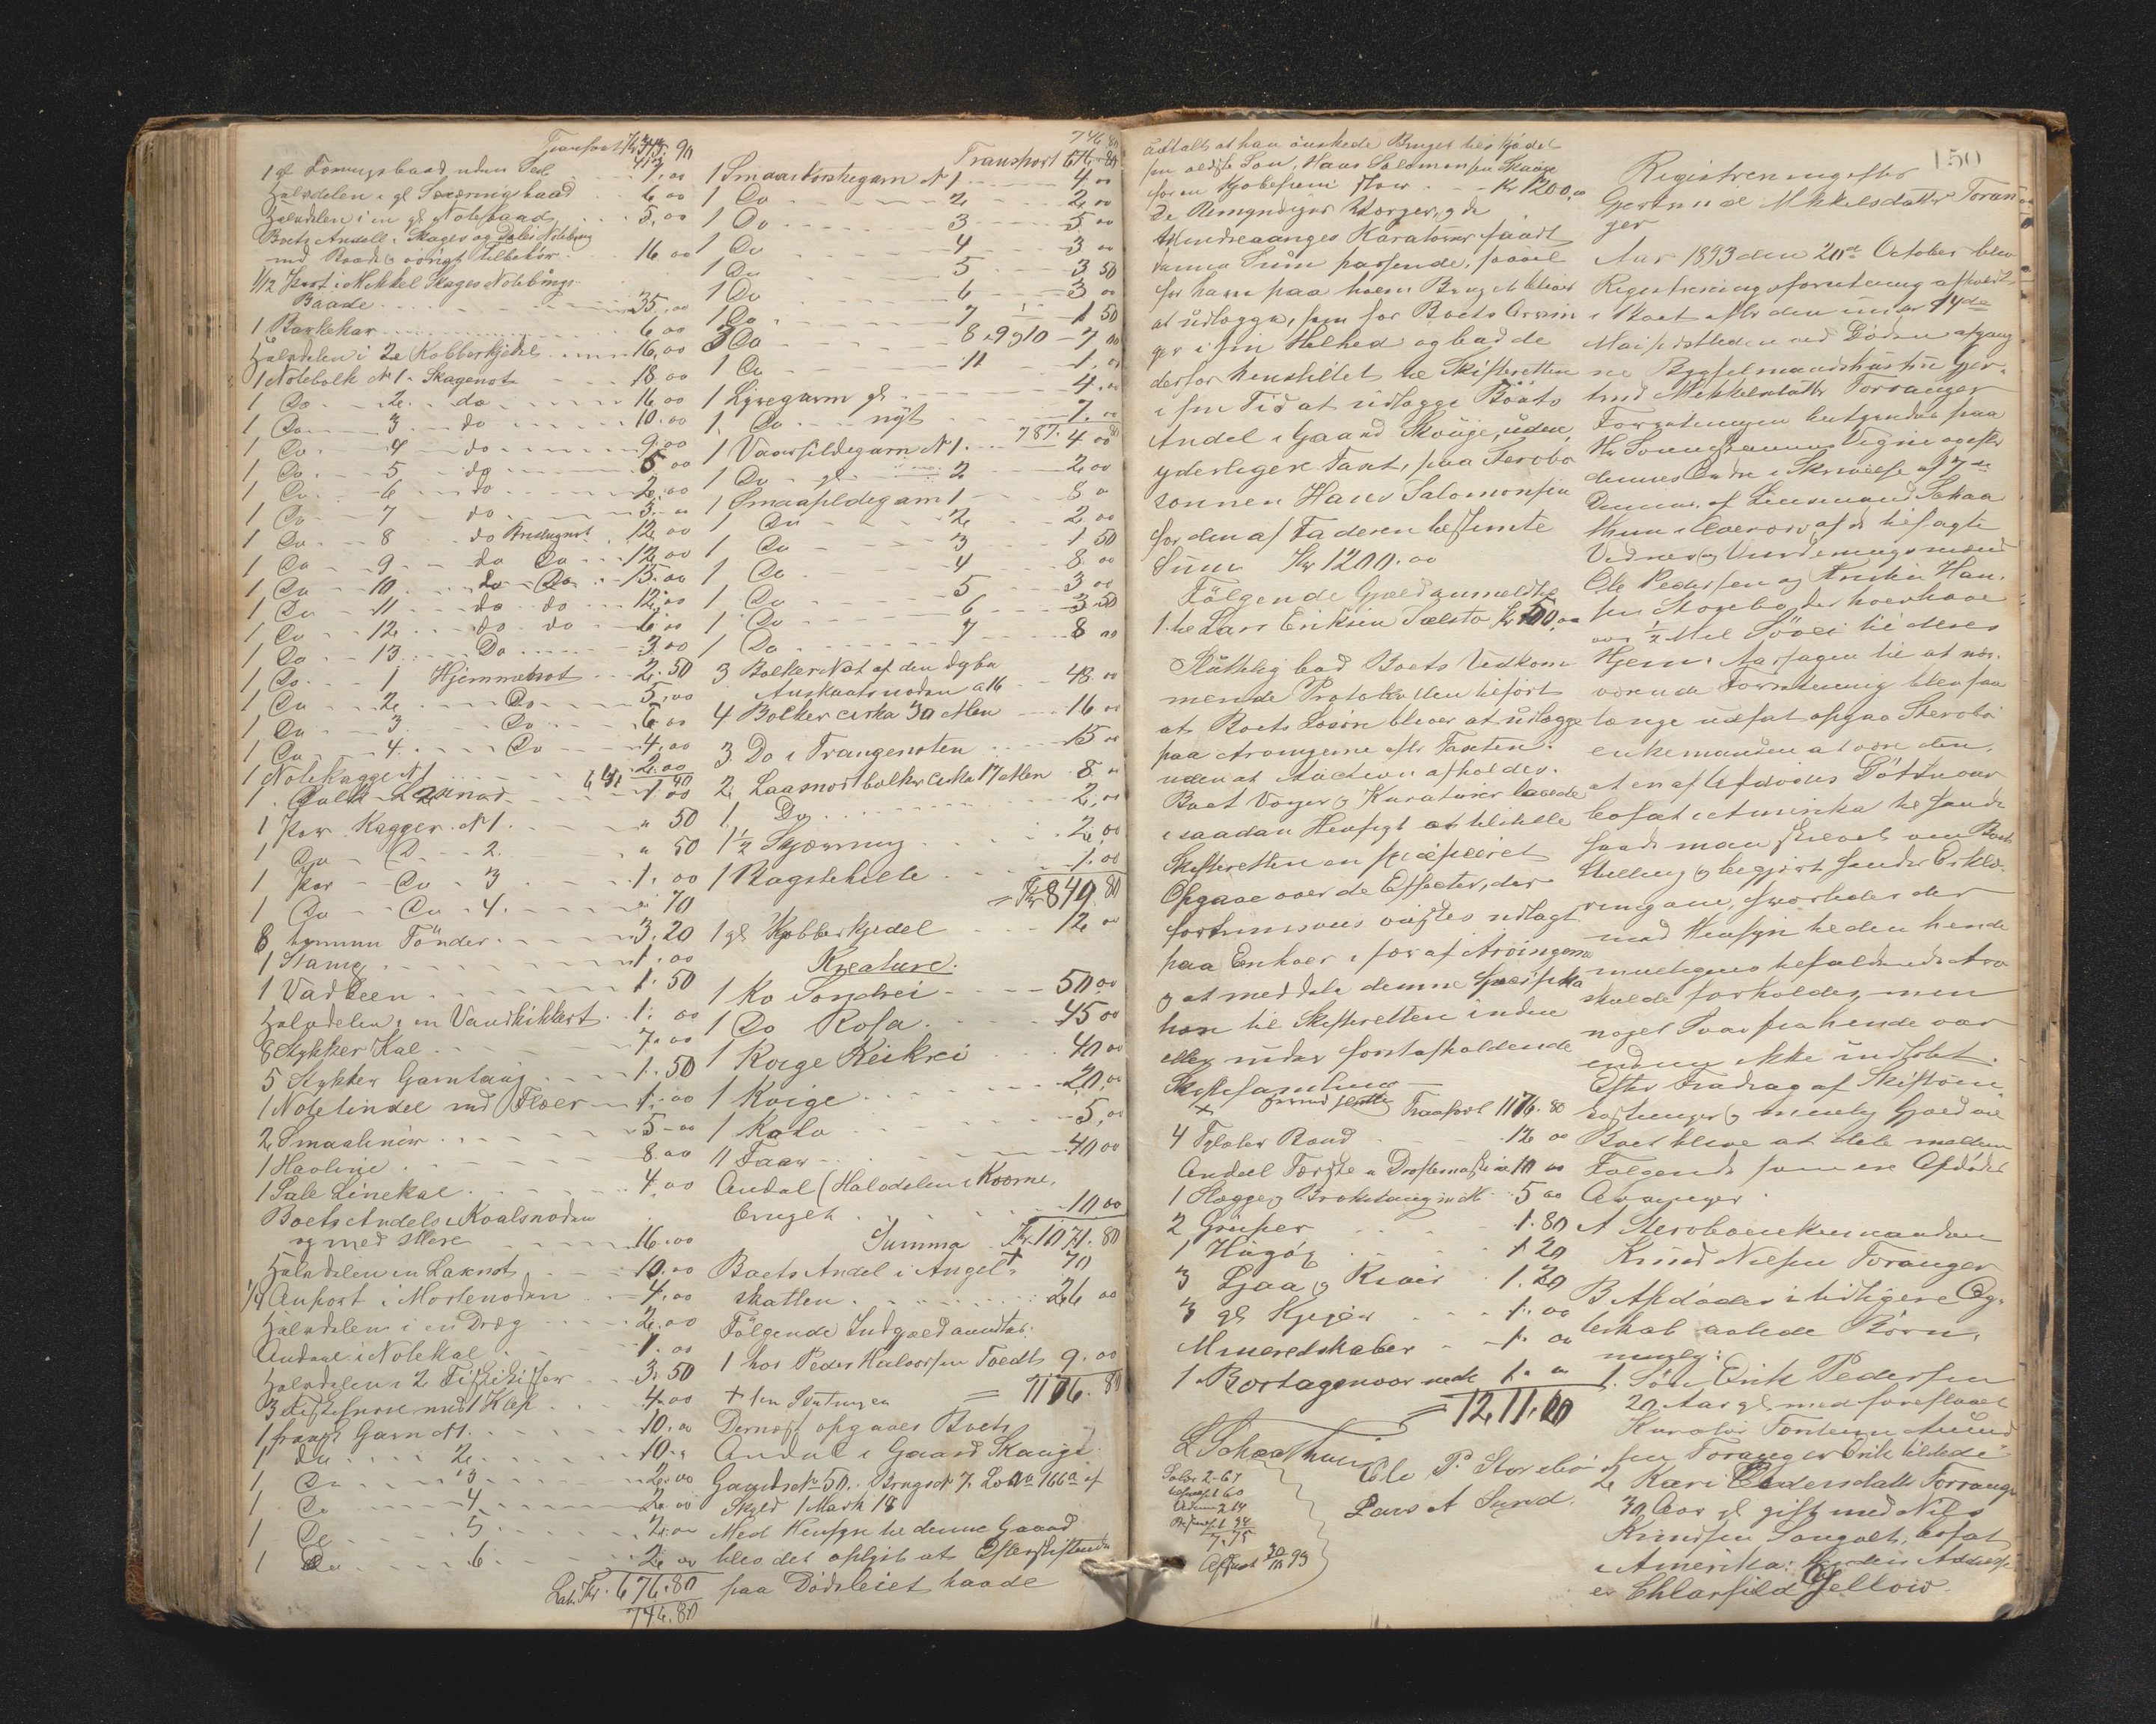 Transport Kr 343. 90
413
1 gl Tømmingsbaad uden Seil 7.00
Halvdelen i gl Sexæringbaad 6 00
Halvdelen i en gl Notebaad 5.00
Boets Andell i Skages og Dales Notebrug
med Baade og øvrigt tilbehør 16 00
1/12 Part i Mikkel Skages Notebrugs
Baade 35.00
1 Barkekar 6 00
Halvdelen i 2 Kobberkjedel 16,00
1 Notebolk No 1 - Skagenot 18 00
1 Do 2 do 16 00
1 Do 3 do 10.00
1 Do 4 do 9.00
1 Do 5 do 5 00
1 Do 6 do 2.00
1 Do 7 do 3.
1 Do 8 do 12 00
1 Do 9 do Do 12 00
1 Do 10 do Do 15.00
1 Do 11 do do 12.00
1 Do 12 do do 6 00
1 Do 13 Do 3 00
1 Do 1 Hjemmenot 2.50
1 Do 2 Do 5.00
1 Do 3 Do 6 00
1 Do 4. Do 4.00
1 Notekagge No 1 2.00
1 00
1 Par Kagger No 1 " 50
1 Do - D - 2. " 50
1 Par - Do - 3 1. 00
1 Do - Do - 4. " 70
8 tomme Tönder 3.20
1 Stamp 1.00
1 Vadbeen 1.50
Halvdelen i en Vandkikkert 1. 00
8 Stykker Kal 7.00
5 Stykker Garntaug 1.50
1 Notelindel med Flæer 1.00
2 Smaaliner 5-00
1 Havline 8.00
1 Sale Linekal 4.00
Boets Andels i Kvalsnoden
og med flere 16.00
Halvdelen en Laxnot 10.00
1/4 Anpart i Mortenoden 4.00
Halvdelen i en Dræg 2.00
Andeel i Notekal 1. 00
Halvdelen i 2 Fiskekister 3.50
3 Fiskesnøre med 1 Klep 4.00
1 Garn No 1. 10.00
1 do 2 10.
1 Do " 3 2.00
1 Do 4. 2 00
1 Do 5. 2.00
1 Do 6. 2 00
Lat. Kr. 676.80
746.80
746 80
Transport 676-80
1 Smaatorskegarn No 1 4 00
1 Do 2 2 00
1 Do 3 5 00
1 Do 4 3 00
1 Do 5 3 50
1 Do 6 3 00
1 Do 7 1 50
3 Do 8.9 og 10 - 7 00
1 Do 11 1.00
1 Lyregarn gl 4.00
1. Do nyt 7.00
1 Vaarsildegarn No 1. 4 00
1 Do - gl 2 2 00
1 Smaasildegarn 1 8 0
1 Do 2 2 00
1 Do 3 1 50
1 Do 4 8.00
1 Do 5 3 00
1 Do 6 3 50
1 Do 7 8 00
3 Bolker Not af den dybe
Auskaatsnoden a 16 48.00
4 Bolker cirka 30 Alen 16 00
3 Do i Trangenoten 15 00
2 Laasnotbolker cirka 17 Alen 8.
1. Do 2.00
1 1/2 Skjæurning 2,00
1 Bagstehelle 1.00
= Kr 849 80
1 gl Kobberkjedel 12 00
Kreature.
1 Ko Sondrei 50.00
1 Do Rosa 45 00
1 Kvige Reikrei 40 00
1 Kvige 20,00
1 Kalv 5.00
11 Faar 40 00
Andel (Halvdelen i Kværne,
bruget 10 00
Summa Kr. 1071. 80
Boets Andel i Angel+ 70
skatten 26 00
Fölgende Indgjæld anmeldtes.
1 hos Peder Halvorsen Toedt 9.00
= 1106.80
Dernæst opgaves Boets
Andel i Gaard Skauge
Gaardsno 50. Brugsno 7. Løbno 166a af
Skyld 1 Mark 18
Med Hensyn til denne Gaard
blev det oplyst at Efterskiftende
paa Dödsleiet havde
udtalt at han önskede Bruget tilskjödet
sin ældste Søn, Hans Salomonsen Skauge
for en Kjøbesum stor Kr 1200,00
De Umyndiges Værger og de
Mindreaariges Kuratorer fandt
denne Sum passende, saavel
for ham paa hvem Bruget bliver
at udlægge, som for Boets Arvin
ger i sin Helhed og bad de
derfor henstillet til Skifteretten
i sin Tid at udlægge Boets
Andel i Gaard Skauge, uden
yderligere Taxt, paa Sterbo
sönnen Hans Salomonsen
for den af Faderen bestemte
Sum Kr 1200.00
Fölgende Gjæld anmeldtes
1. til Lars Eriksen Sælstø Kr 500,00
Sluttelig bad Boets Vedkom
mende Protokollen tilført
at Boets Løsøre bliver at udlægge
paa Arvingerne efter Taxten
uden at Auction afholdes.
Boets Værger og Kuratorer lovede
i saadan Henseigt at tilstille
Skifteretten en specificeret
Opgave over de Effecter, der
fortrinsvis ønskes udlagt
paa Enhver især af Arvingerne
og at meddele denne Specifika
tion til Skifteretten inden
eller under forstafholdende
Skiftesamling
+ Transport 1106.80
4 Tylvter Bord 12 00
Andeel Tærske o Drøftemaskine 10 00
1 Slægge og Brækstang m M 5 00
2 Griper 1.80
1 Hugög 1 20
3 Ljaa og Knier 1.20
3 gl Kjeper 1.00
Mineredskaber 1. 00
1 1.
= 1211.00
L Schaathun
Ole P. Storebö
Lars A Sund.
2-67
60
2 14
94
7.75
150
Registrering efter
Gertrude Mikkelsdatter Toran
ger
Aar 1893 den 20de October blev
Registreringsforretning afholdt
i Boet efter den under 14de
Mai sidstleden ved Døden afgang
ne Bygselmandshustru Ger-
trud Mikkelsdatter Torranger
Forretningen betjentes paa
Hr Sorenskrivers Vegne og efter
dennes Ordre i Skrivelse af 7de
Dennes, af Lensmand Schaa
thun i Overvær af de tilsagte
Vidner og Vurderingsmænd
Ole Pedersen og Anders Han-
sen Storebö, der hver have
over 1/2 Mil Søvei til deres
Hjem. Aarsagen til at nær-
værende Forretning blev saa
længe udsat opgav Sterbo
enkemanden at være den,
at en af Afdødes Döttre var
bosat i Amerika til hende
havde man skrevet om Boets
Stilling og begjært hendes Erklæ-
ring om, hvorledes der
med Hensyn til den hende
muligens tilfaldende Arv
skulde forholdes, men
noget Svar fra hende var
endnu ikke indløbet.
Efter Fradrag af Skifteom
kostninger og mulig Gjæld vil
Boet blive at dele mellem
Følgende som ere Afdödes
Arvinger.
A Sterboenkemanden
Knud Nilsen Toranger
B Afdødes i tidligere Æg-
teskab avlede Börn,
nemlig:
1. Søn Erik Pedersen
20 Aar gl med foreslaaet
Kurator Torstein Amund
sen Toranger Erik tilstede
2 Kari Pedersdatter Torranger
30 Aar gl gift med Nils
Knudsen Langalt, bosat
i Amerika: Hendes Addresse
er Chlarfield Yellow